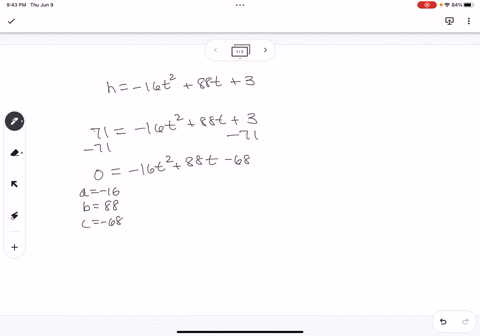 9:43 PM Thu Jun 9
84%
1/1
h = -16t² + 88t + 3
71 = -16t² + 88t + 3
-71 -71
0 = -16t² + 88t - 68
a = -16
b = 88
c = -68